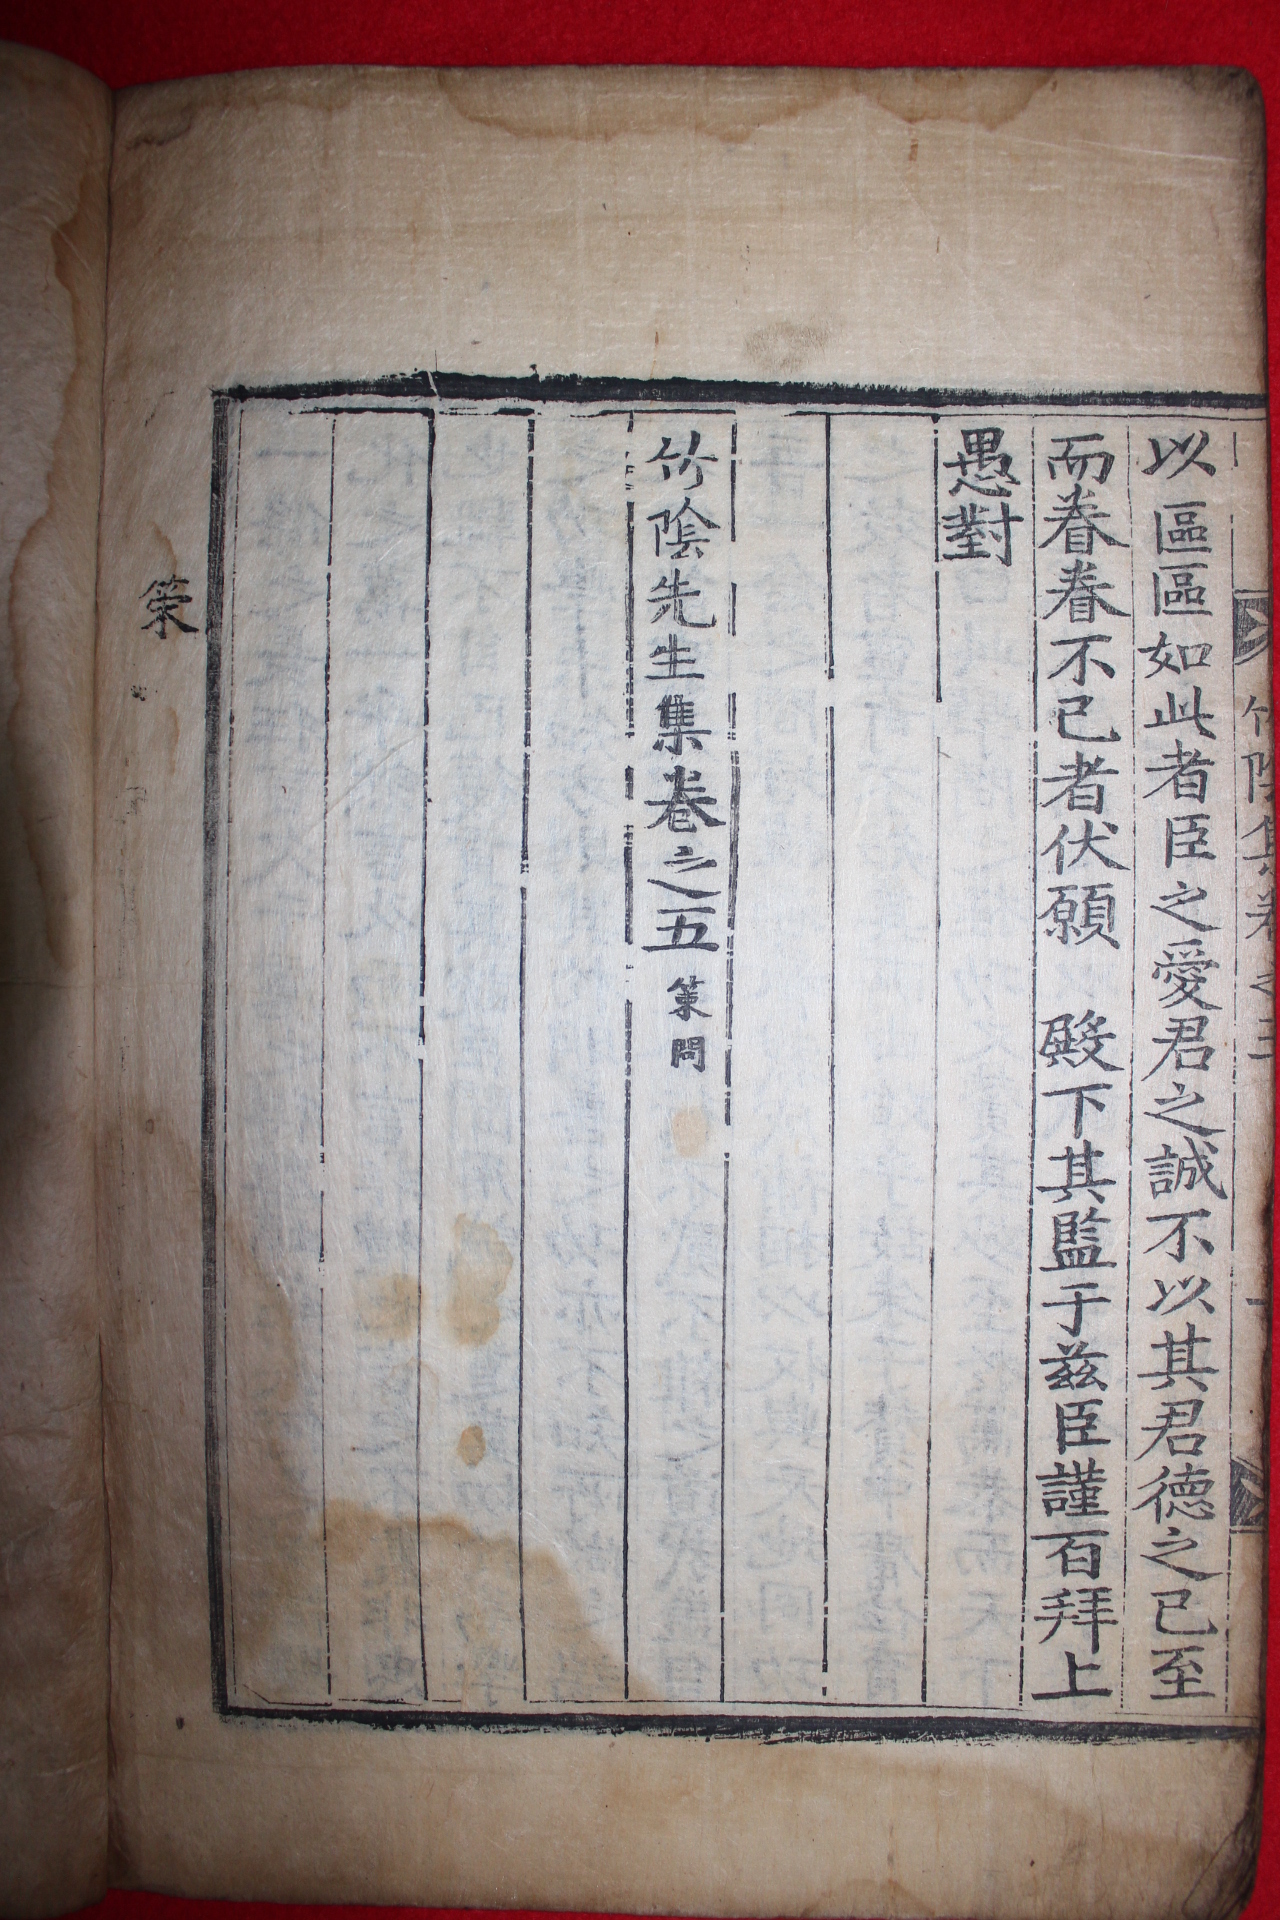 竹陰集卷之五
以區區如此者臣之愛君之誠不以其君德之已至
而眷眷不已者伏願 殿下其監于兹臣謹百拜上
愚對
竹陰先生集卷之五 策問
策